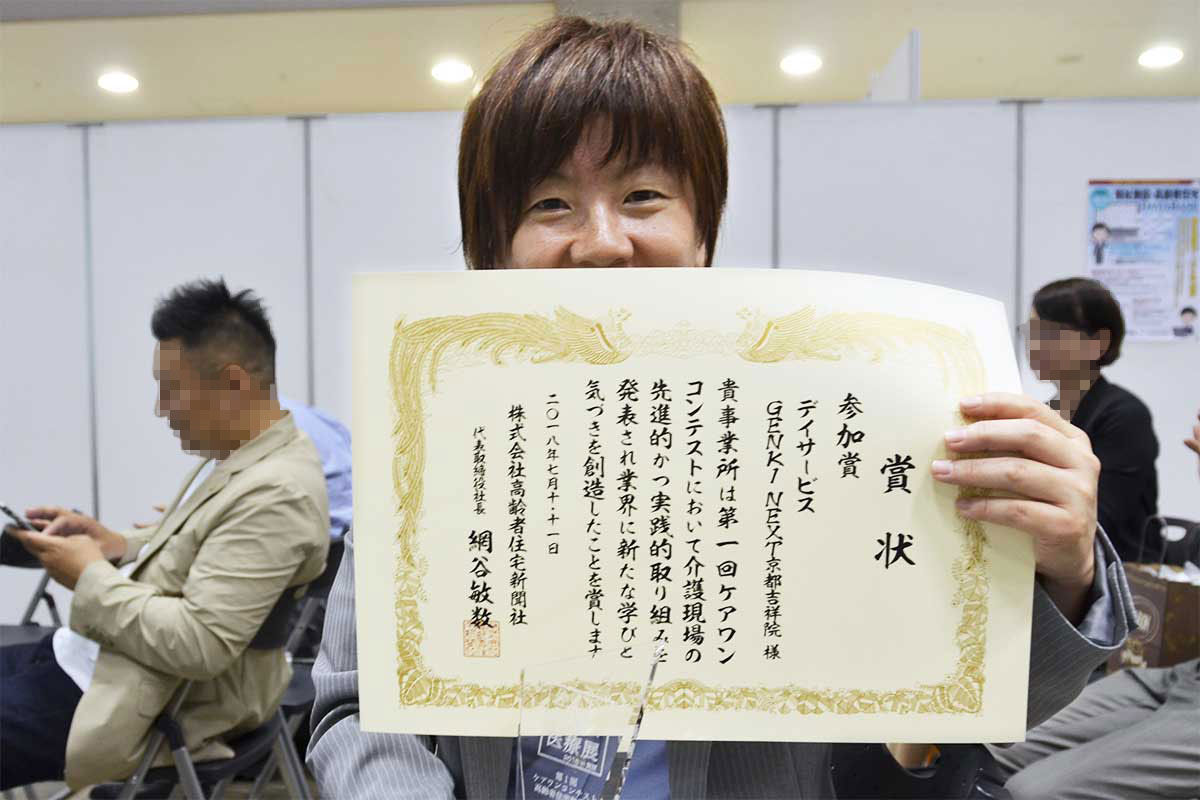 賞状
参加賞
デイサービス
GENKI NEXT京都吉祥院 様
貴事業所は第一回ケアワン
コンテストにおいて介護現場の
先進的かつ実践的取り組みを
発表され業界に新たな学びと
気づきを創造したことを賞します
二〇一八年七月十・十一日
株式会社高齢者住宅新聞社
代表取締役社長 網谷敏数
医療展
第1回
ケアワンコンテスト